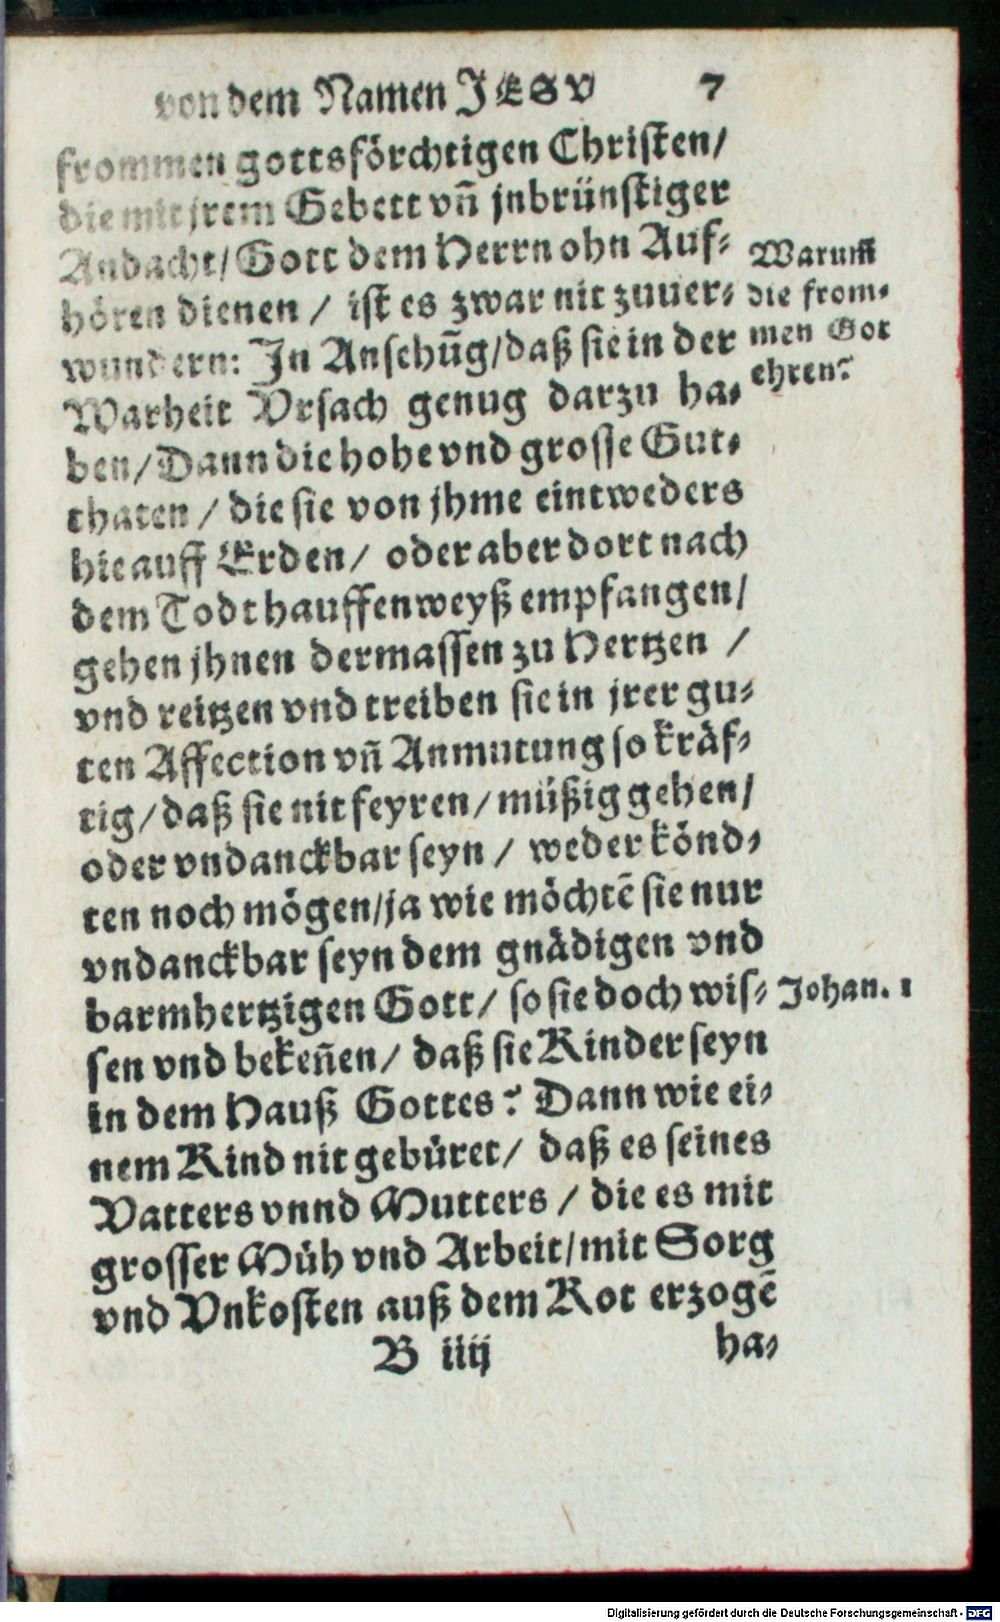 von dem Namen JESV 7
frommen gottsförchtigen Christen/
die mit jrem Gebett vñ jnbrünstiger
Andacht/ Gott dem Herrn ohn Auf-
hören dienen / ist es zwar nit zuuer-
wundern: Jn Ansehũg/ daß sie in der
Warheit Vrsach genug darzu ha-
ben/ Dann die hohe vnd grosse Gut-
thaten / die sie von jhme eintweders
hie auff Erden/ oder aber dort nach
dem Todt hauffenweyß empfangen/
gehen jhnen dermassen zu Hertzen /
vnd reitzen vnd treiben sie in jrer gu-
ten Affection vñ Anmutung so kräf-
tig/ daß sie nit feyren/ müßig gehen/
oder vndanckbar seyn / weder könd-
ten noch mögen/ ja wie möchtẽ sie nur
vndanckbar seyn dem gnädigen vnd
barmhertzigen Gott/ so sie doch wis-
sen vnd bekeñen/ daß sie Kinder seyn
in dem Hauß Gottes? Dann wie ei-
nem Kind nit gebüret/ daß es seines
Vatters vnnd Mutters / die es mit
grosser Müh vnd Arbeit/ mit Sorg
vnd Vnkosten auß dem Kot erzogẽ
B iiij ha-
Warum̃
die from-
men Got
ehren?
Johan. 1
Digitalisierung gefördert durch die Deutsche Forschungsgemeinschaft - DFG